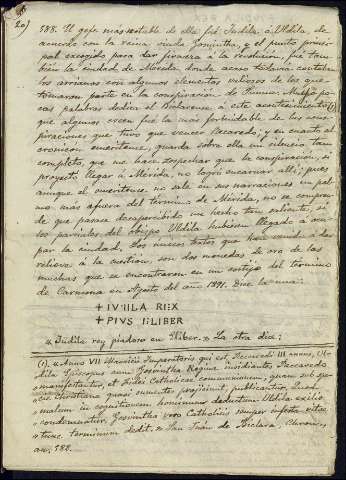 20)
588. El gefe mas notable de ella fué Iudila ó Uldila, de
acuerdo con la reina viuda Gosvintha, y el punto princi-
pal escogido para dar firmeza á la revolucion, fué tam-
bien la ciudad de Mérida donde acaso todavia contaban
los arrianos con algunos elementos valiosos de los que
tomaron parte en la conspiracion de Sunna. Muy po-
cas palabras dedica el Biclarense á este acontecimiento (1)
que algunos creen fué la más formidable de las cons-
piraciones que tuvo que vencer Recaredo; y en cuanto al
cronicon emeritense, guarda sobre ella un silencio tan
completo, que me hace sospechar que la conspiracion, si
proyectó llegar á Mérida, no logró encarnar allí; pues
aunque el emeritense no sale en sus narraciones un pal-
mo más afuera del término de Mérida, no se compren-
de que pasase desapercibido un hecho tan saliente, si
los parciales del obispo Uldila hubiesen llegado á ocu-
par la ciudad. Los únicos textos que han venido á dar
relieves á la cuestion, son dos monedas de oro de las
muchas que se encontraron en un cortijo del término
de Carmona en Agosto del año 1891. Dice la una:
+ IVDILA REX
+ PIVS ELIBER
« Iudila rey piadoso en Eliber. » La otra dice:
(1). « Anno VII Mauricii Imperatoris qui est Reccaredi III annus, Ul-
dila Episcopus cum Gosvintha Regina insidiantes Reccaredo
manifestantur, et Fidei Catholicae communionem, quam sub spe-
cie christiana quasi sumentes projiciunt, publicantur. Quod
malum in cognitionem hominum deductum Uldila exilio
condemnatur. Gosvintha vero Catholicis semper infesta vitae
tunc terminum dedit. » San Juan de Biclara, Chron.
an. 588.